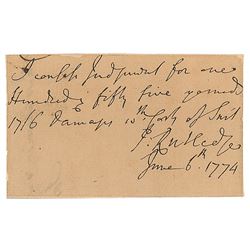 I confess Judgment for one
Hundred & fifty five pounds
17/6 Damages wth Costs of Suit
J: Rutledge
June 6th. 1774